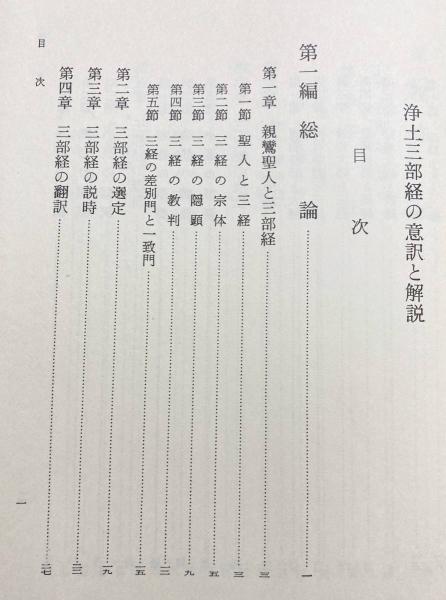 浄土三部経の意訳と解説
目次
第一編 総論 一
第一章 親鸞聖人と三部経 三
第一節 聖人と三経 三
第二節 三経の宗体 五
第三節 三経の隠顕 九
第四節 三経の教判 一三
第五節 三経の差別門と一致門 一五
第二章 三部経の選定 一九
第三章 三部経の説時 二三
第四章 三部経の翻訳 二七
目次
一